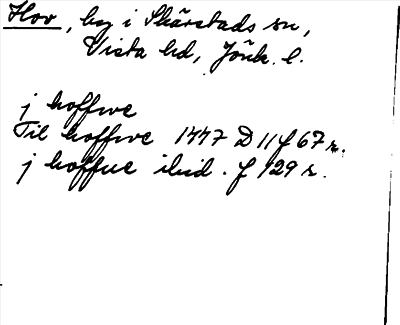 Hov, by i Skärstads sn,
Vista hd, Jönk. l.
j hoffwe
Til hoffwe 1447 D 11 f 67 r.
j hoffue ibid. f 129 r.